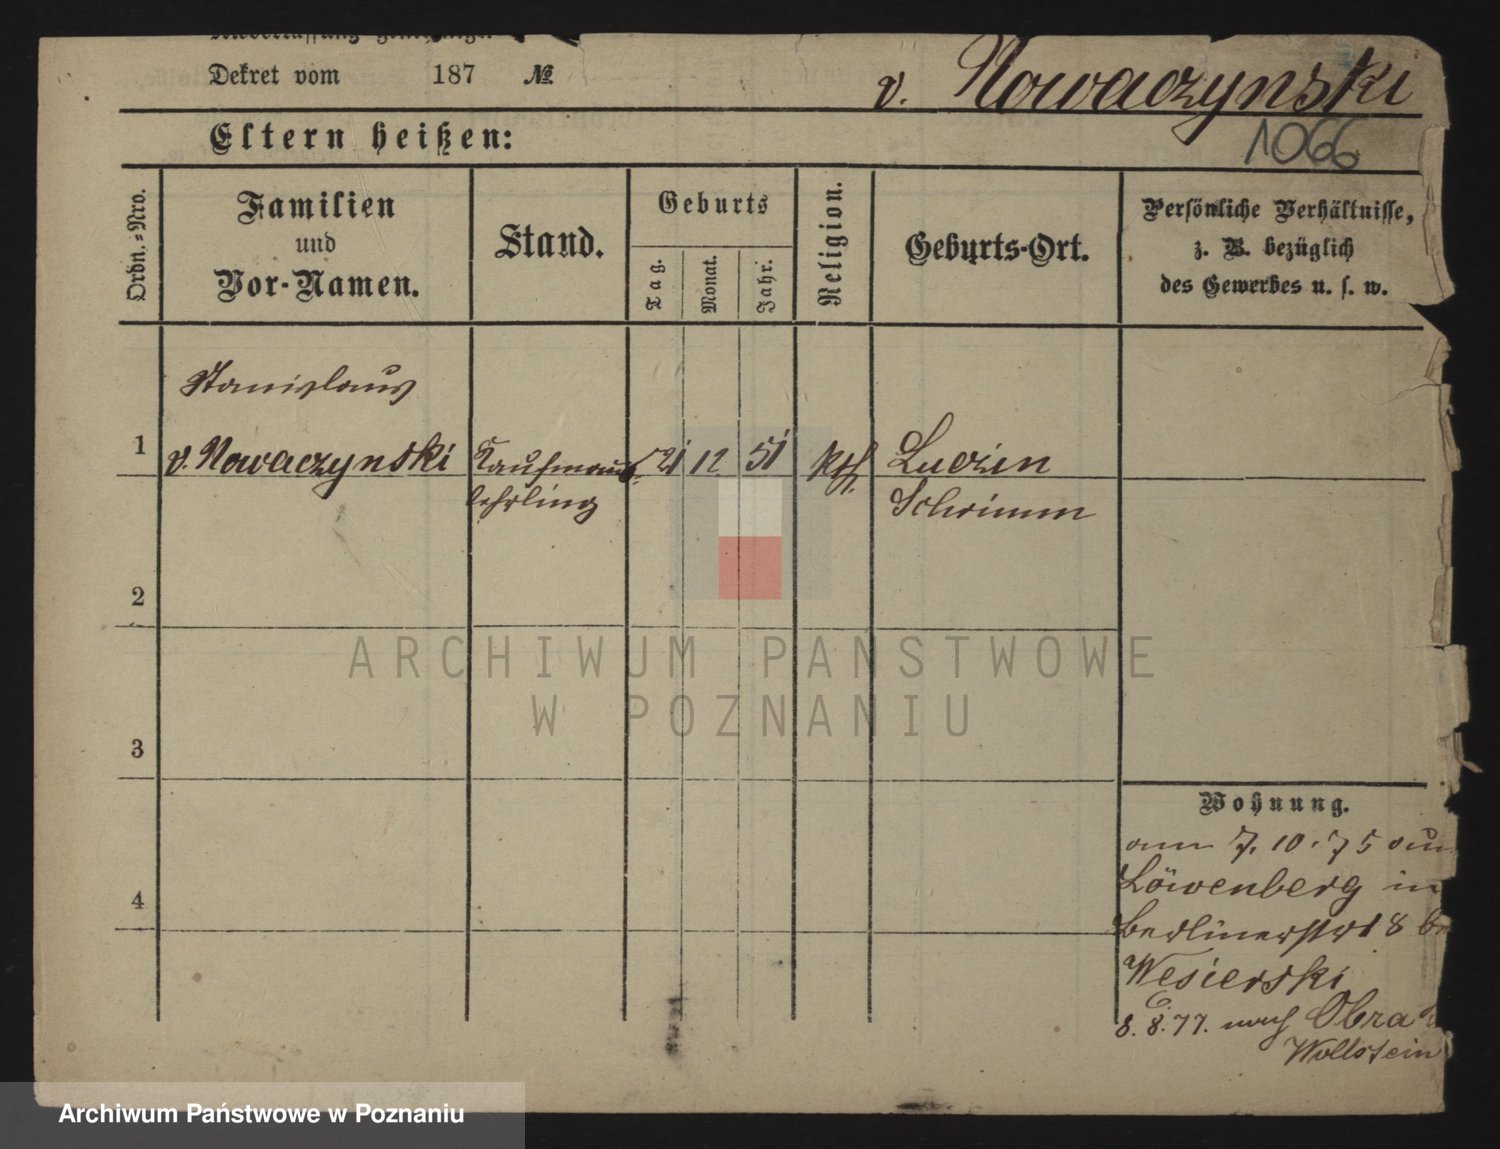 Dekret vom 187 №
v. Nowaczynski
1066
Eltern heißen:
Ordn.=Nro.
Familien
und
Vor-Namen.
Stand.
Geburts
Tag.
Monat.
Jahr.
Religion.
Geburts-Ort.
Persönliche Verhältnisse,
z. B. bezüglich
des Gewerbes u. s. w.
Stanislaus
1 v. Nowaczynski Kaufmanns 21 12 51 kth. Luczin
lehrling Schrimm
2
3
4
ARCHIWUM PAŃSTWOWE
W POZNANIU
Wohnung.
am 7. 10. 75 aus
Löwenberg in
Berlinerstr 18 be
Wesierski
8. 8. 77. nach Obra
Wollstein
Archiwum Państwowe w Poznaniu